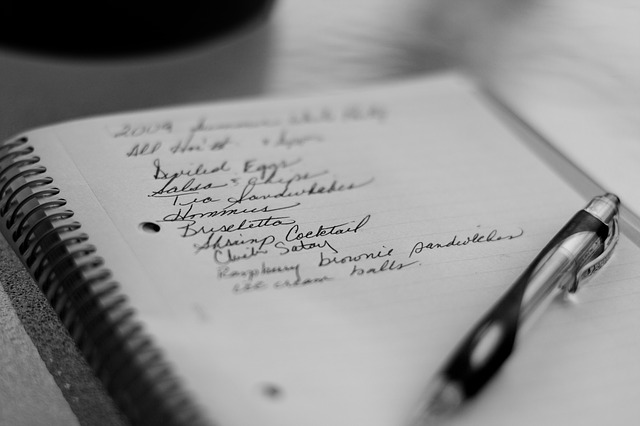 2009 Summer White Party
All
Deviled Eggs
Salsa & Chips
Tea Sandwhiches
Hommus
Brischetta
Shrimp Cocktail
Satay
Raspberry brownie sandwiches
ice cream balls.